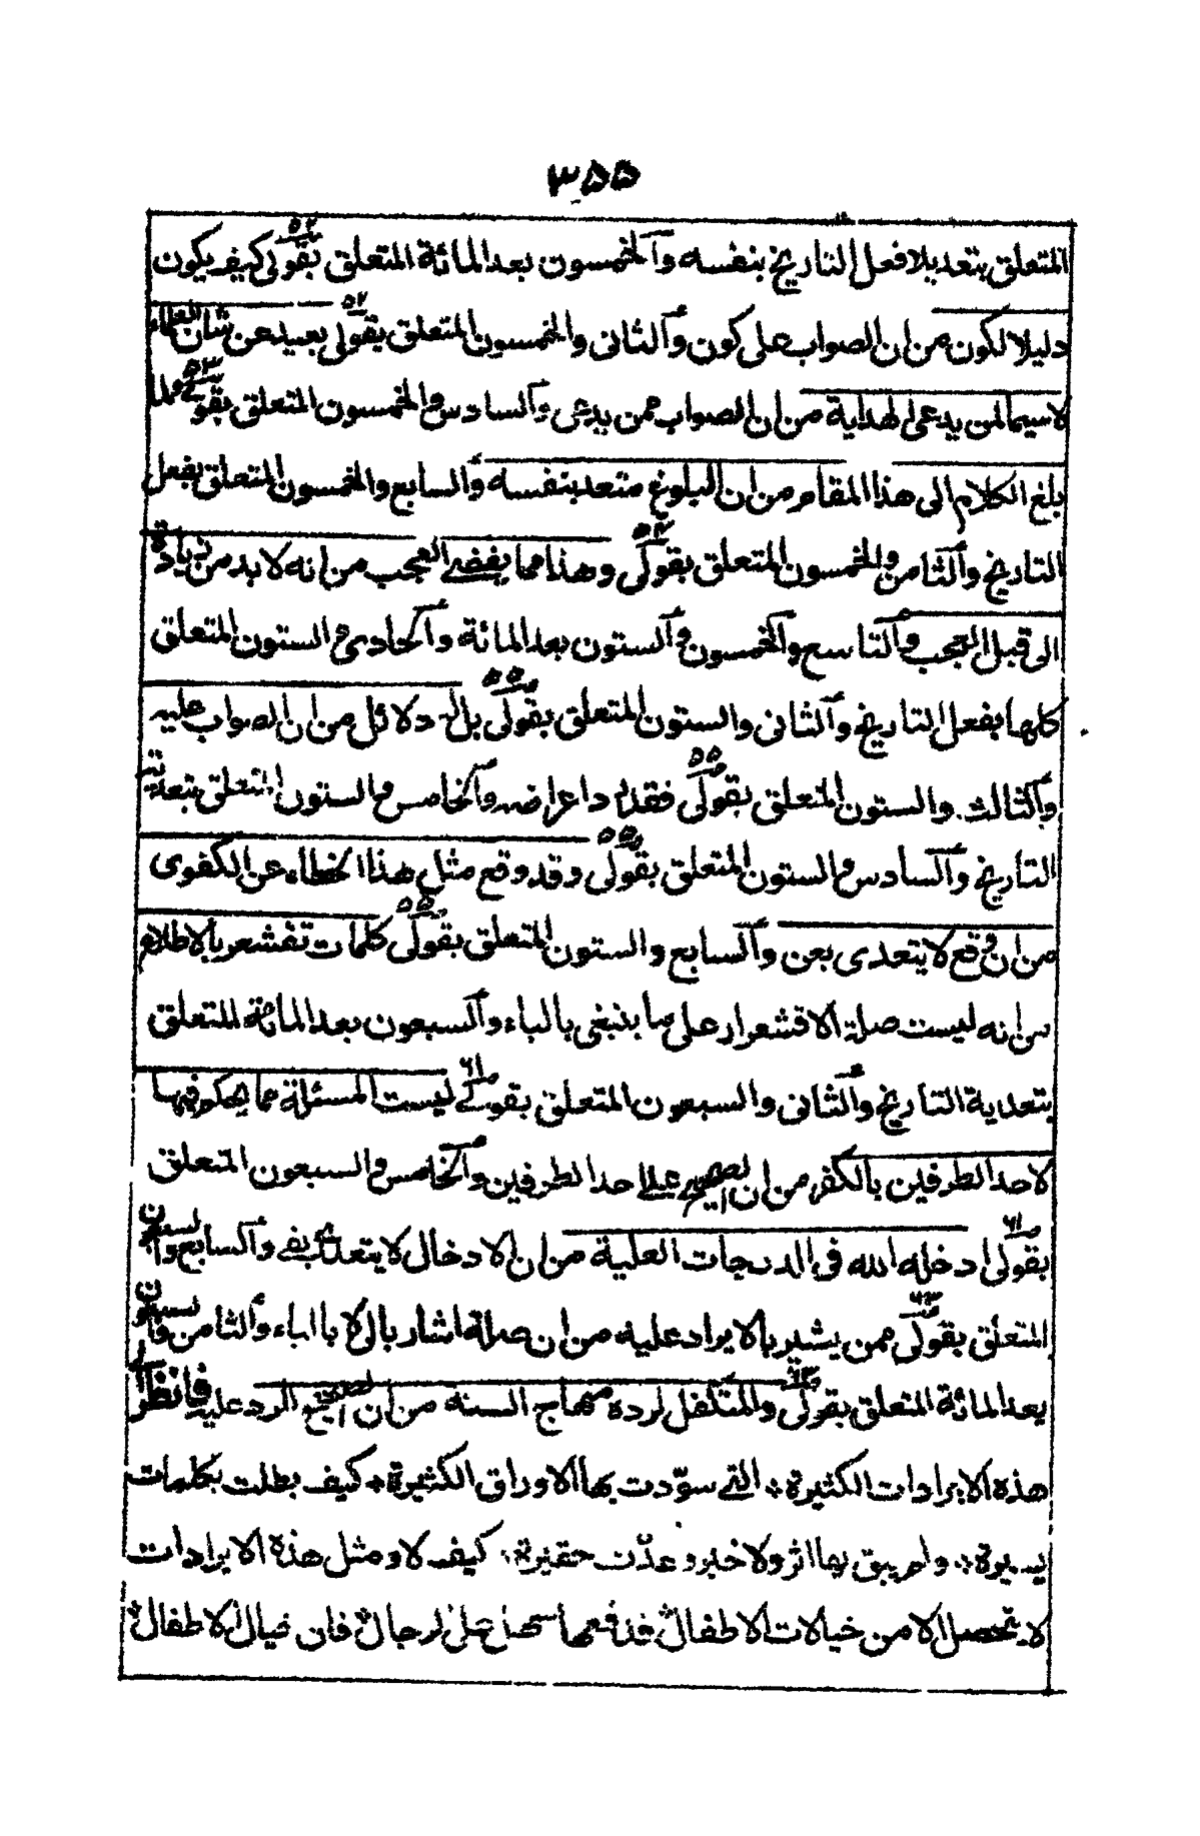 ٣٥٥
المتعلق بتعديلا فعل التاريخ بنفسه وآلخمسون بعد المائة المتعلق بقولى كيف يكون
دليلا لكون من ان الصواب على كون وآلثانى والخمسون المتعلق بقولى بعيد عن شان العلماء
لاسيما لمن يدعى الهداية من ان الصواب ممن يدعى وآلسادس والخمسون المتعلق بقولى ولما
بلغ الكلام الى هذا المقام من ان البلوغ متعد بنفسه وآلسابع والخمسون المتعلق بفعل
التاريخ وآلثامن والخمسون المتعلق بقولى وهذا مما يفضى العجب من انه لا بد من زيادة
الى قبل العجب وآلتاسع وآلخمسون وآلستون بعد المائة وآلحادى والستون المتعلق
كلها بفعل التاريخ وآلثانى والستون المتعلق بقولى بل له دلائل من ان الصواب عليه
وآلثالث والستون المتعلق بقولى فقد اعراضه وآلخامس والستون المتعلق بتعدية
التاريخ وآلسادس والستون المتعلق بقولى وقد وقع مثل هذا الخطاء عن الكفوى
من ان وقع لا يتعدى بعن وآلسابع والستون المتعلق بقولى كلمات تقشعر بالاطلاع
من انه ليست صلة الاقشعرار على ما ينبغى بالباء وآلسبعون بعد المائة المتعلق
بتعدية التاريخ وآلثانى والسبعون المتعلق بقولى ليست المسئلة مما يحكم فيها
لاحد الطرفين بالكفر من ان الصحيح على احد الطرفين وآلخامس والسبعون المتعلق
بقولى ادخله الله فى الدرجات العلية من ان الادخال لا يتعدى بفى وآلسابع والسبعون
المتعلق بقولى ممن يشير بالايراد عليه من ان صلة اشار بالى لا بالباء وآلثامن والسبعون
بعد المائة المتعلق بقولى والمتكفل لرده منهاج السنة من ان الصحيح الرد عليه فانظر الى
هذه الايرادات الكثيرة؞ التى سوّدت بها الاوراق الكثيرة؞ كيف بطلت بكلمات
يسيرة؞ ولم يبق بها اثر ولا خبر وعدّت حقيرة؞ كيف لا ومثل هذه الايرادات
لا تحصل الا من خيالات الاطفال؞ فدفعها سهل على الرجال؞ فان خيال الاطفال؞